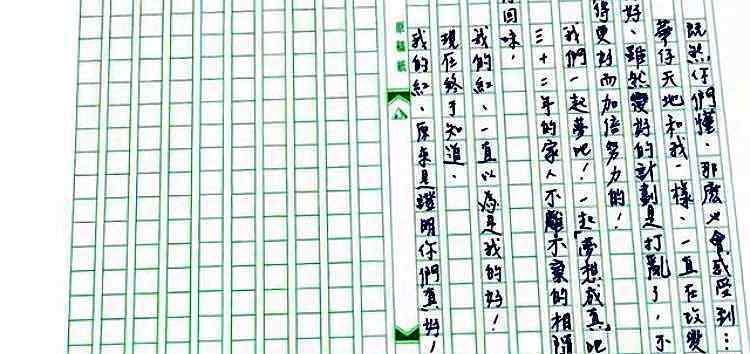 既然你們懂、那麼也會感受到…
華仔天地和我一樣、一直在改變
好、雖然變好的計劃是打亂了，不
得更好而加倍努力的！
我們一起夢吧！一起「夢想成真」吧
三十二年的家人不離不棄的相隨
回味，
我的紅、一直以為是我的好！
現在終于知道、
原稿紙
我的紅、原來是證明你們真好！